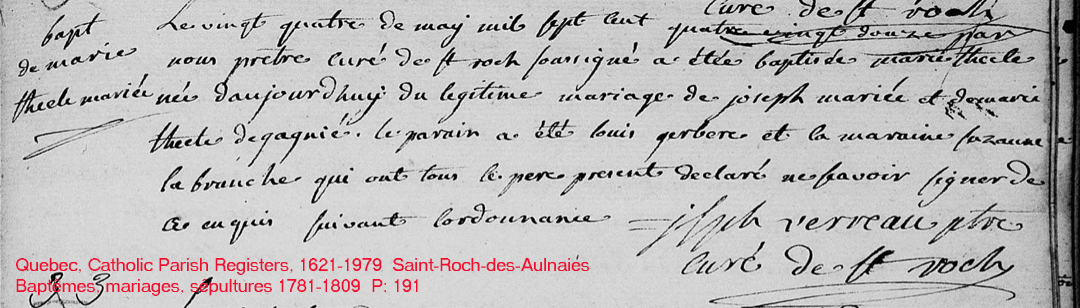 curé de st roch
bapt
de marie
thecle mariée
Le vingt quatre de may mil sept cent quatre vingt douze par
nous prêtre curé de st roch soussigné a étée baptisée marie thecle
née d'aujourd'huy du legitime mariage de joseph mariée et de marie
thecle degagnié. le parain a été louis gerbere et la maraine suzanne
labranche qui ont tous le pere present declaré ne savoir signer de
ce enquis suivant l'ordonnance = jsph verreau ptre
curé de st roch
Quebec, Catholic Parish Registers, 1621-1979 Saint-Roch-des-Aulnaies
Baptêmes, mariages, sépultures 1781-1809 P: 191